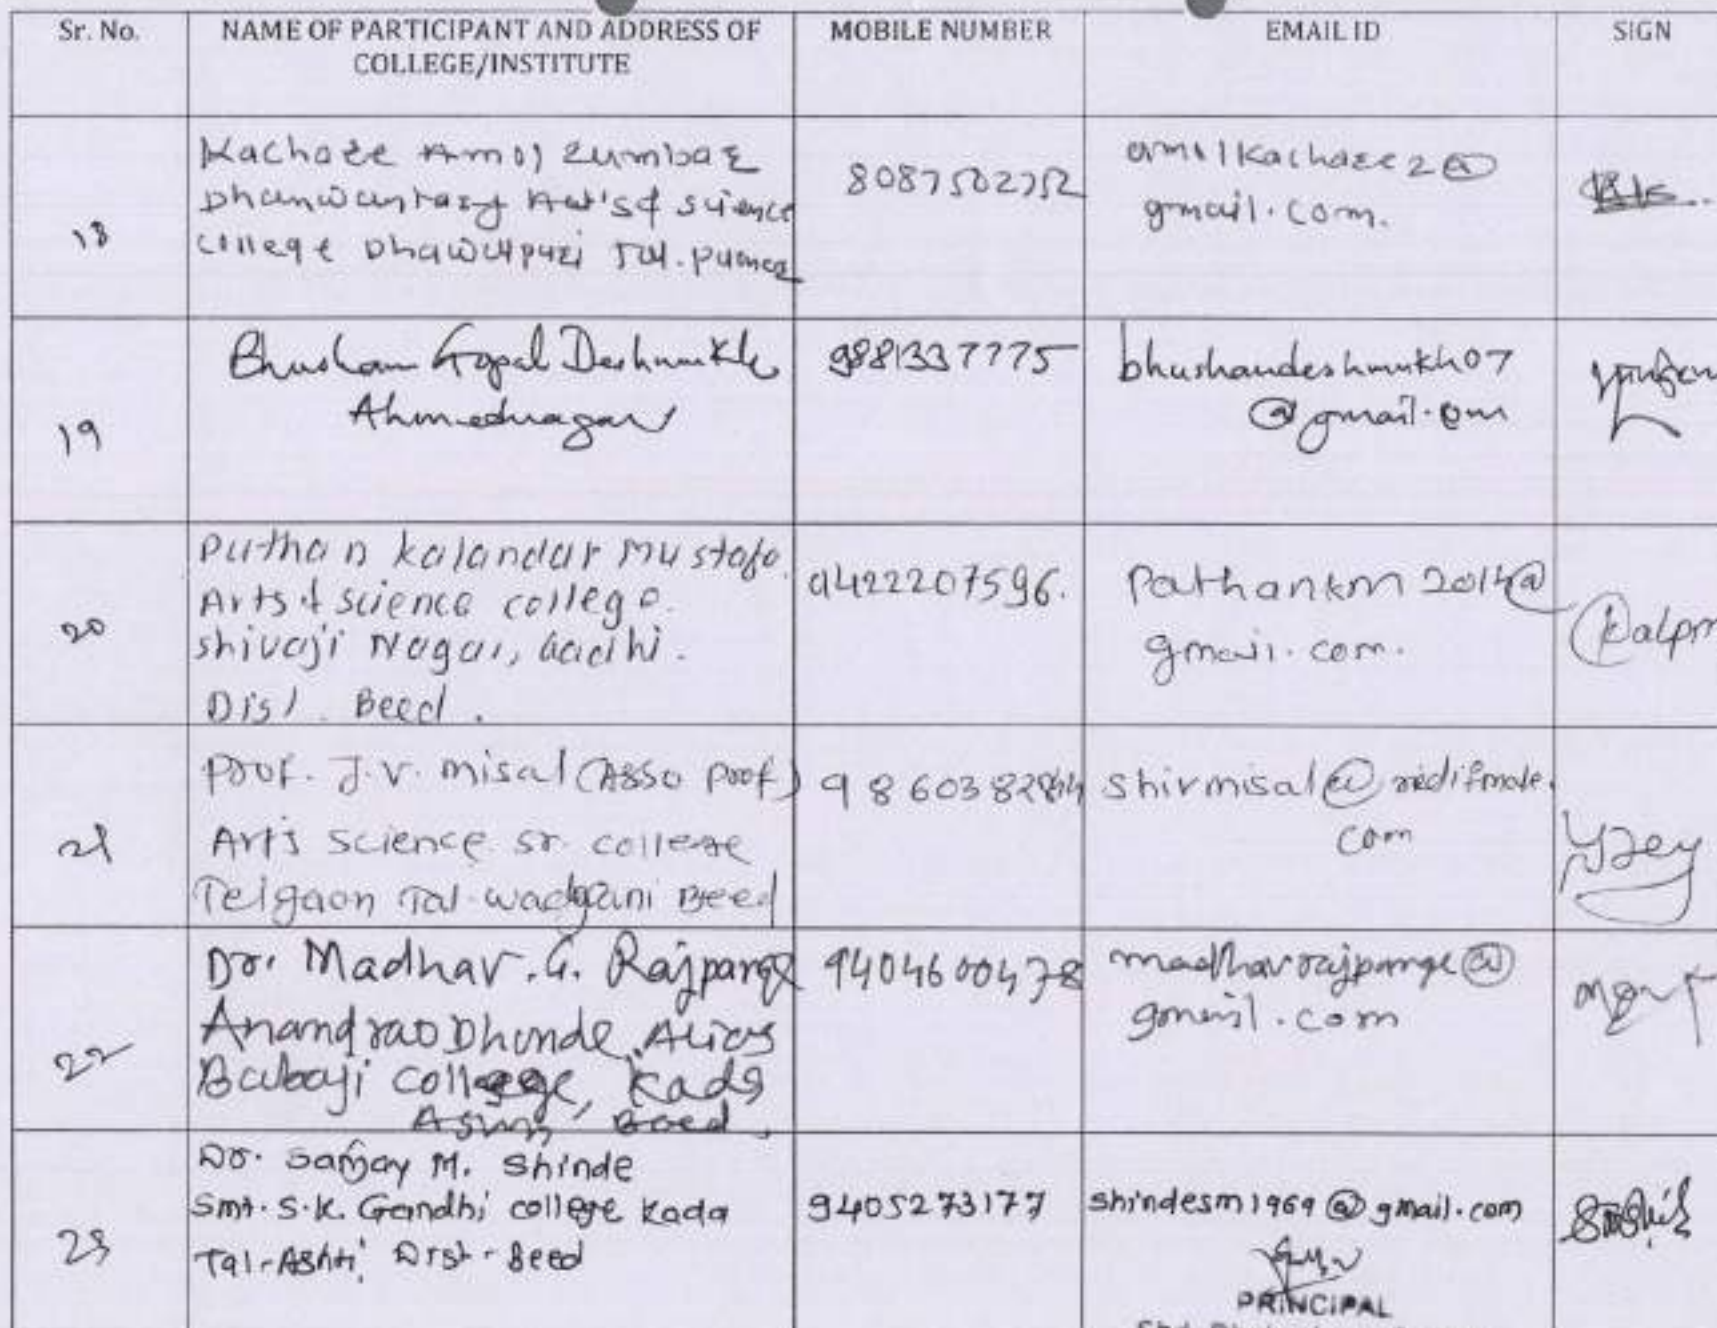 Sr. No. NAME OF PARTICIPANT AND ADDRESS OF MOBILE NUMBER EMAIL ID SIGN
COLLEGE/INSTITUTE
18
Kachare Amol Zumbar
Dhanwantary Art's & science
college Dhawalpuri Tal.
8087502752
amolkachare2@
gmail.com.
19
Bhushan Gopal Deshmukh
Ahmednagar
9881337775
bhushandeshmukh07
@gmail.com
20
Pathan kalandar Mustafa
Arts & science college.
shivaji Nagar, Gadhi.
Dist. Beed.
9422207596.
Pathankm2014@
gmail.com.
21
Prof. J.V. misal (Asso prof)
Arts science sr. college
Telgaon Tal. Beed
98603828
shirmisal@
com
22
Dr. Madhav. G. Rajpange
Anandrao Dhonde Alias
Babaji college, Kada
Beed.
9404600478
madhavrajpange@
gmail.com
23
Dr. Sanjay M. Shinde
Smt. S.K. Gandhi college Kada
Tal-Ashti, Dist-Beed
9405273177
shindesm1969@gmail.com
PRINCIPAL